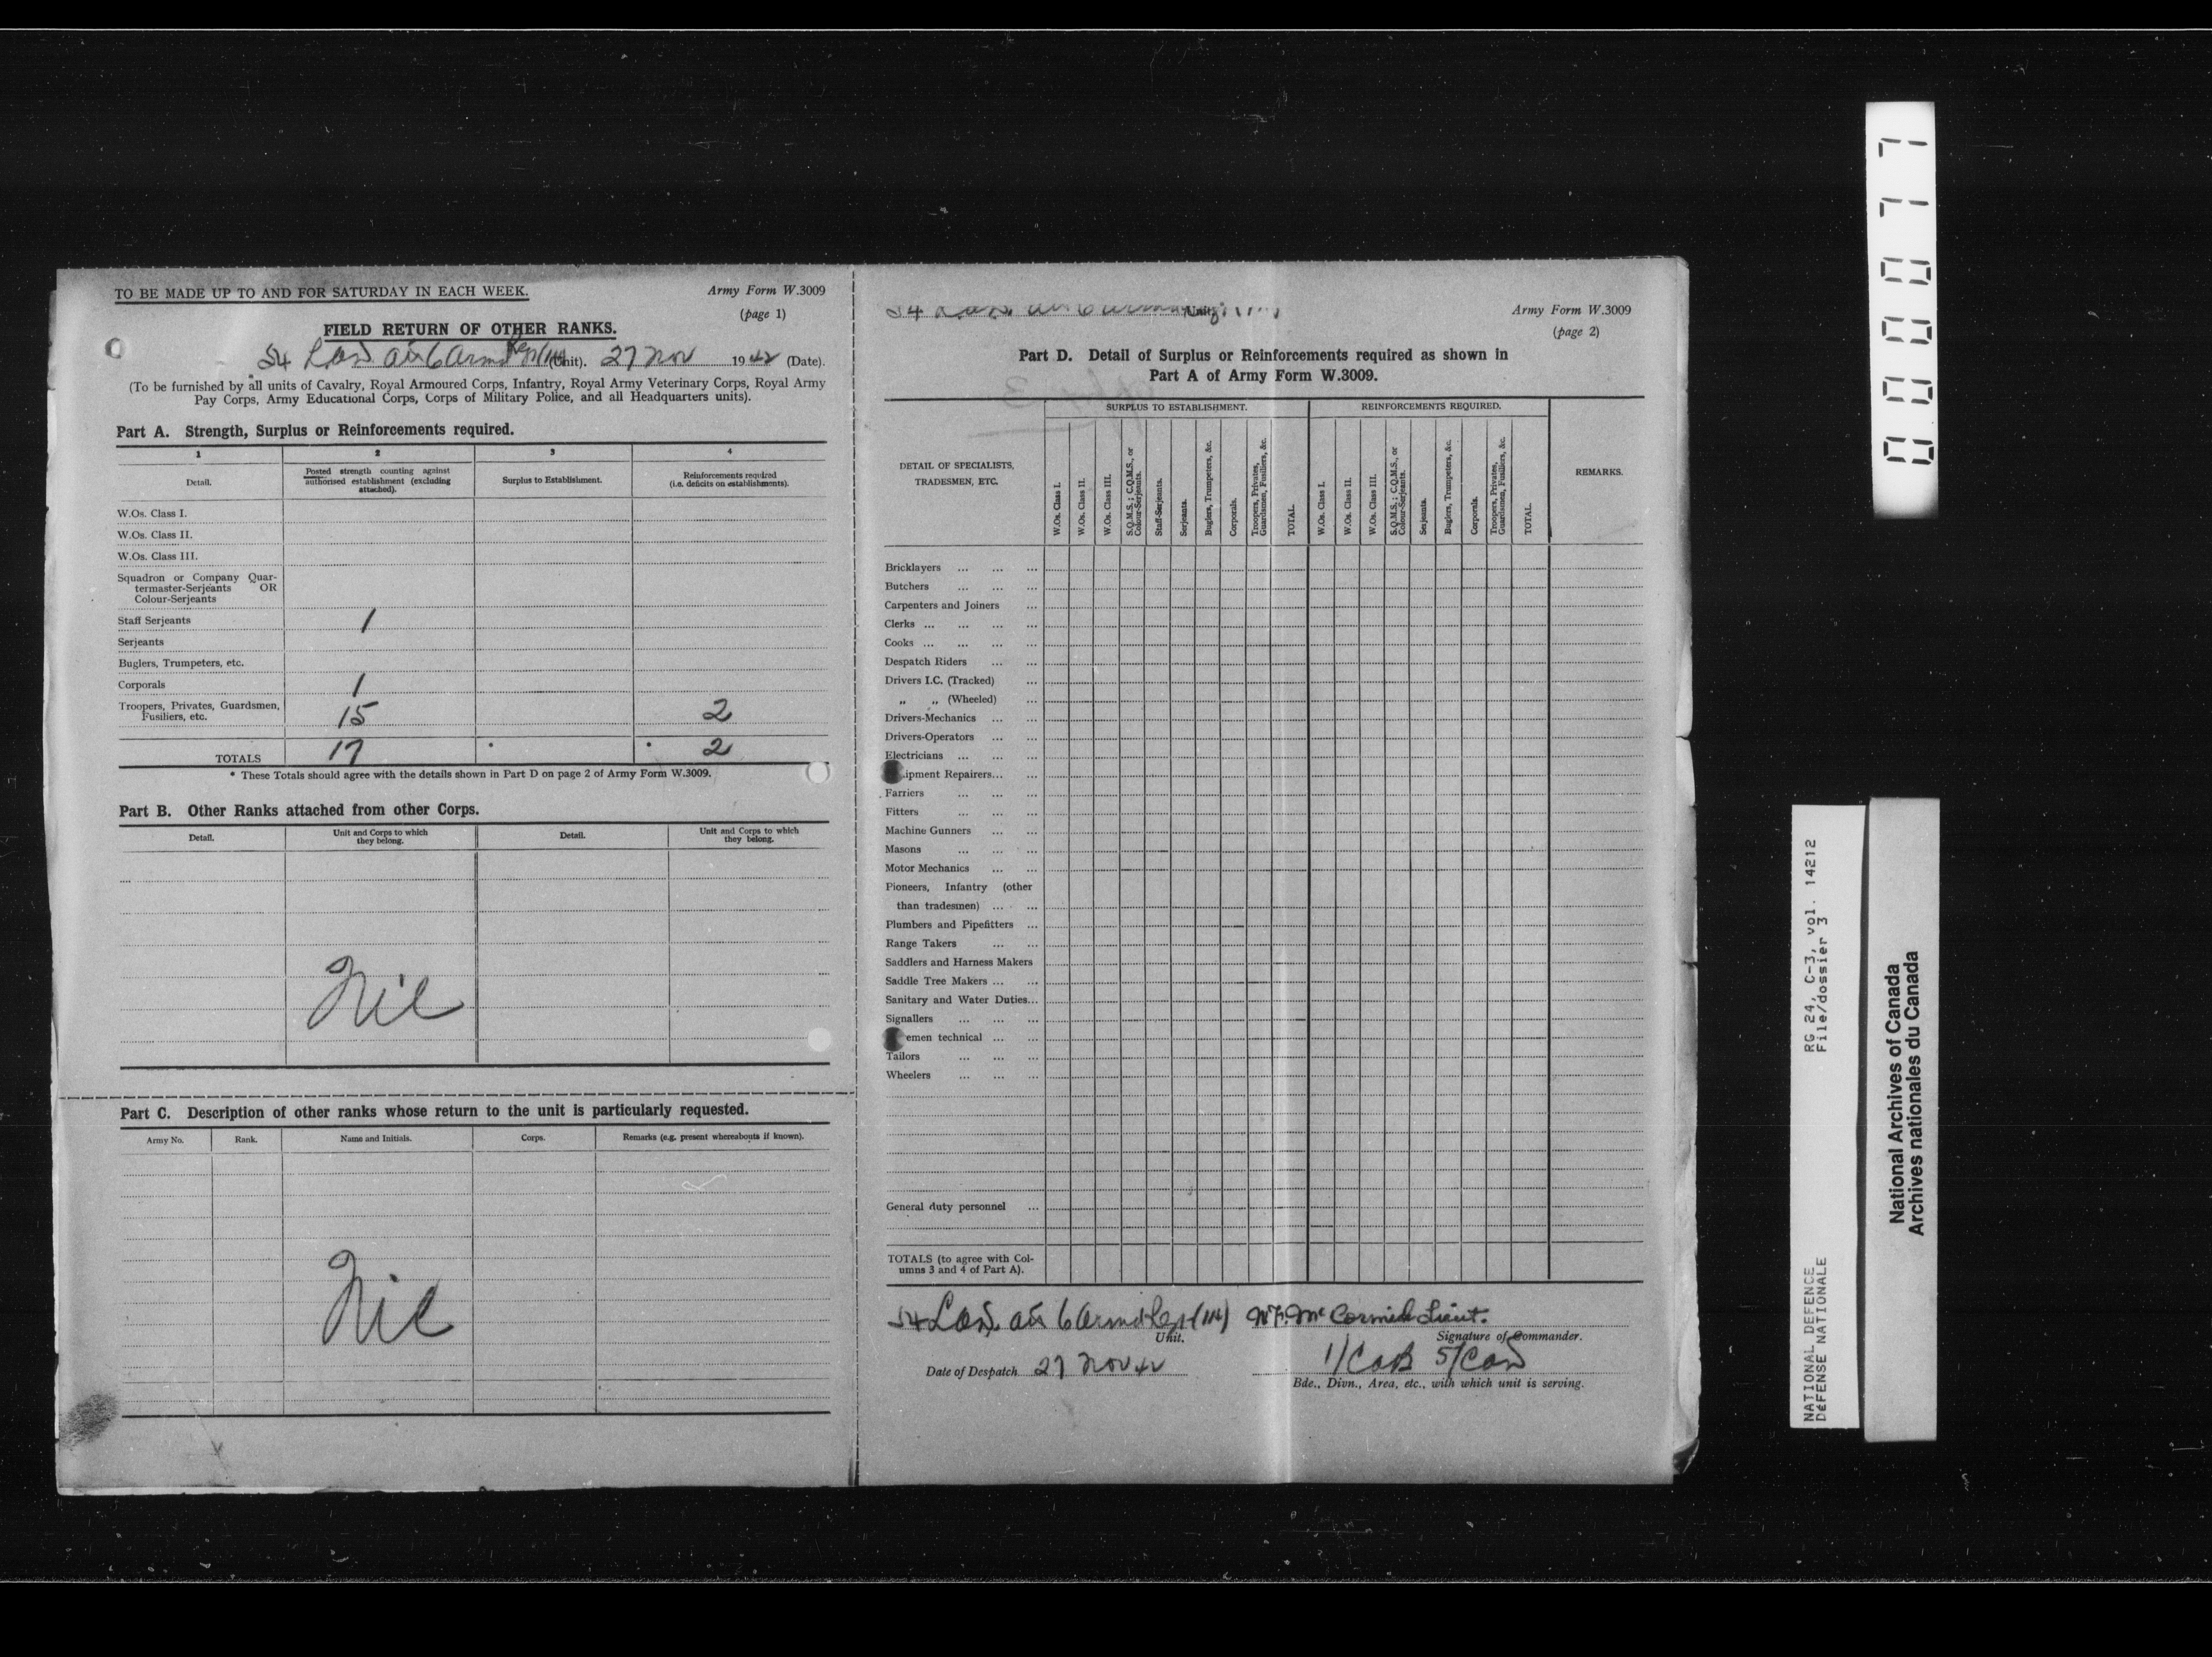 TO BE MADE UP TO AND FOR SATURDAY IN EACH WEEK.
Army Form W.3009
(page 1)
FIELD RETURN OF OTHER RANKS.
54 (Unit). 27 Nov 1942 (Date).
(To be furnished by all units of Cavalry, Royal Armoured Corps, Infantry, Royal Army Veterinary Corps, Royal Army
Pay Corps, Army Educational Corps, Corps of Military Police, and all Headquarters units).
Part A. Strength, Surplus or Reinforcements required.
1 2 3 4
Detail.
Posted strength counting against
authorised establishment (excluding
attached).
Surplus to Establishment.
Reinforcements required
(i.e. deficits on establishments).
W.Os. Class I.
W.Os. Class II.
W.Os. Class III.
Squadron or Company Quar-
termaster-Serjeants OR
Colour-Serjeants
Staff Serjeants 1
Serjeants
Buglers, Trumpeters, etc.
Corporals 1
Troopers, Privates, Guardsmen,
Fusiliers, etc. 15 2
TOTALS 17 * * 2
* These Totals should agree with the details shown in Part D on page 2 of Army Form W.3009.
Part B. Other Ranks attached from other Corps.
Detail.
Unit and Corps to which
they belong.
Detail.
Unit and Corps to which
they belong.
Nil
Part C. Description of other ranks whose return to the unit is particularly requested.
Army No. Rank. Name and Initials. Corps. Remarks (e.g. present whereabouts if known).
Nil
54 Unit
Army Form W.3009
(page 2)
Part D. Detail of Surplus or Reinforcements required as shown in
Part A of Army Form W.3009.
DETAIL OF SPECIALISTS,
TRADESMEN, ETC.
SURPLUS TO ESTABLISHMENT.
W.Os. Class I.
W.Os. Class II.
W.Os. Class III.
S.Q.M.S.; C.Q.M.S., or
Colour-Serjeants.
Staff-Serjeants.
Serjeants.
Buglers, Trumpeters, &c.
Corporals.
Troopers, Privates,
Guardsmen, Fusiliers, &c.
TOTAL.
REINFORCEMENTS REQUIRED.
W.Os. Class I.
W.Os. Class II.
W.Os. Class III.
S.Q.M.S.; C.Q.M.S., or
Colour-Serjeants.
Serjeants.
Buglers, Trumpeters, &c.
Corporals.
Troopers, Privates,
Guardsmen, Fusiliers, &c.
TOTAL.
REMARKS.
Bricklayers ... ... ...
Butchers ... ... ...
Carpenters and Joiners ...
Clerks ... ... ... ...
Cooks ... ... ... ...
Despatch Riders ... ...
Drivers I.C. (Tracked) ...
„ „ (Wheeled) ...
Drivers-Mechanics ... ...
Drivers-Operators ... ...
Electricians ... ... ...
ipment Repairers... ...
Farriers ... ... ...
Fitters ... ... ...
Machine Gunners ... ...
Masons ... ... ...
Motor Mechanics ... ...
Pioneers, Infantry (other
than tradesmen) ... ...
Plumbers and Pipefitters ...
Range Takers ... ...
Saddlers and Harness Makers
Saddle Tree Makers ... ...
Sanitary and Water Duties...
Signallers ... ... ...
emen technical ... ...
Tailors ... ... ...
Wheelers ... ... ...
General duty personnel ...
TOTALS (to agree with Col-
umns 3 and 4 of Part A).
54 McCormick Lieut.
Unit. Signature of Commander.
Date of Despatch 27 Nov 42
Bde., Divn., Area, etc., with which unit is serving.
0000077
RG 24, C-3, vol. 14212
File/dossier 3
NATIONAL DEFENCE
DéFENSE NATIONALE
National Archives of Canada
Archives nationales du Canada